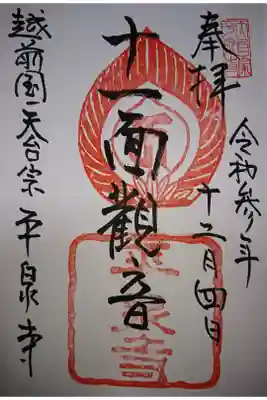 奉拝
令和参年
十二月四日
十一面觀音
越前国天台宗平泉寺
平泉寺